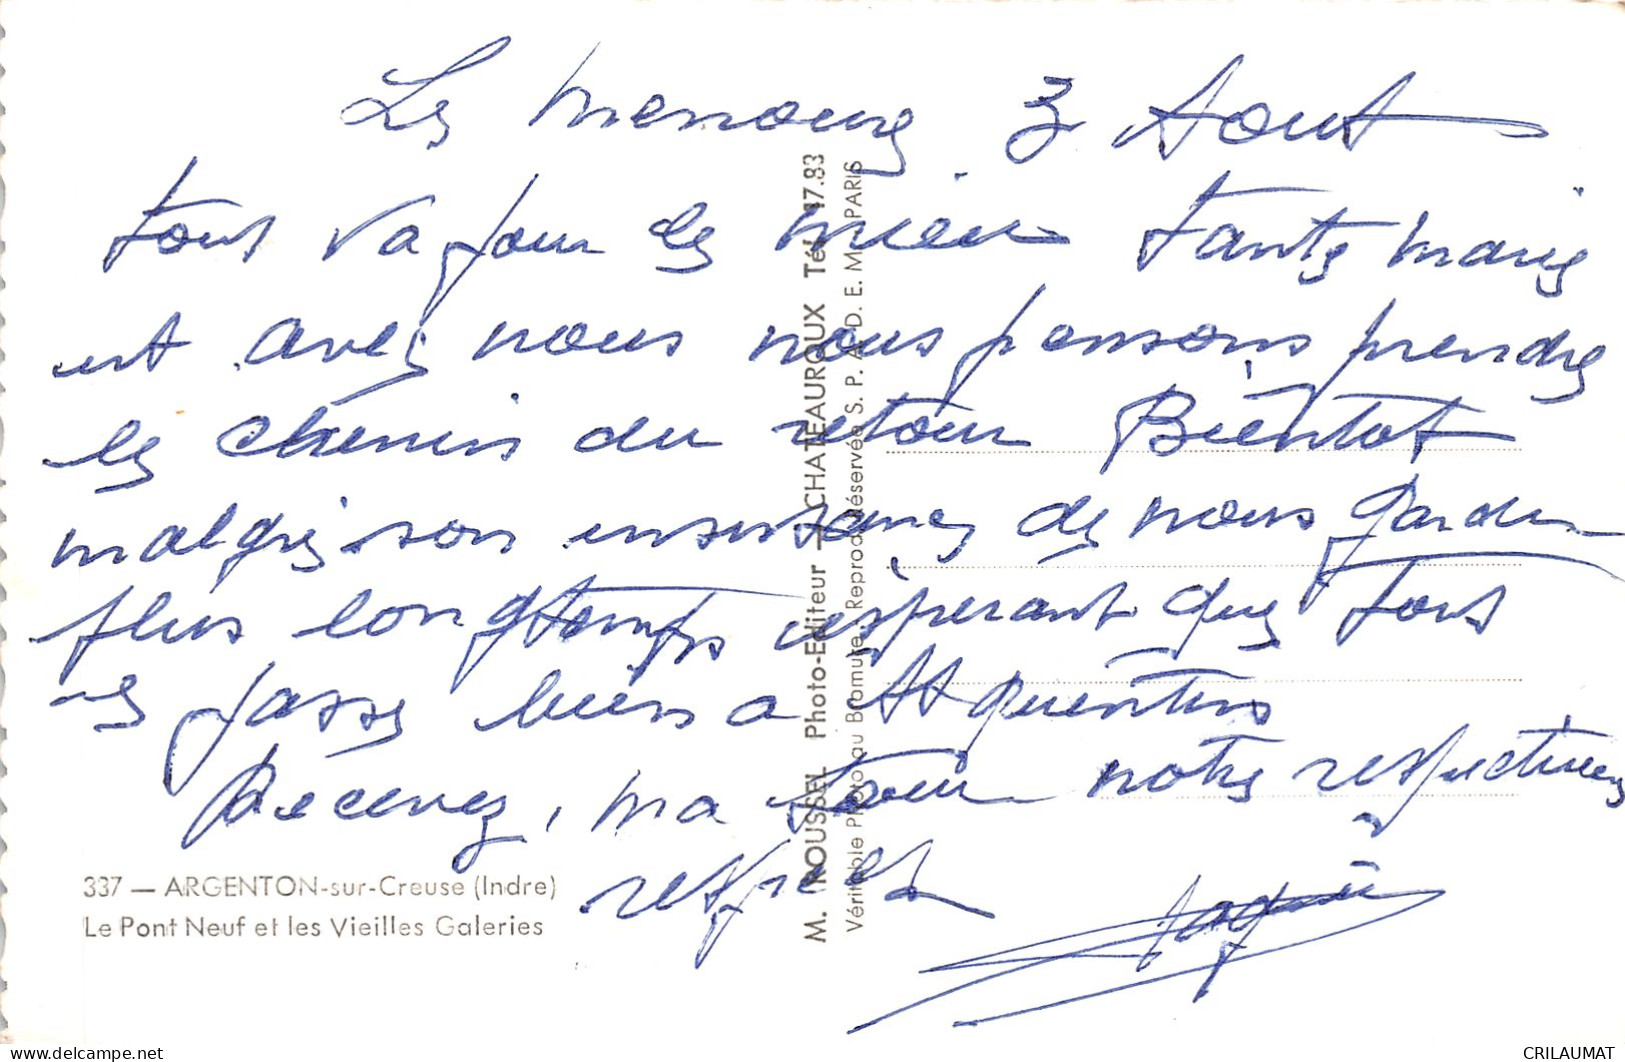 Le Menoux 3 Aout
tout va pour le mieu tante marie
est avec nous nous pensons prendre
le chemin du retour Bientot
malgré son insistance de nous garder
plus longtemps espérant que tout
ce passe bien a St Quentin
Recevez, ma Soeur notre respectueux
respect
337 — ARGENTON-sur-Creuse (Indre)
Le Pont Neuf et les Vieilles Galeries
M. ROUSSEL Photo-Editeur — CHATEAUROUX Tél. 17.83
Véritable Photo au Bromure Reprod. réservée S. P. A. D. E. M. PARIS
delcampe.net
CRILAUMAT